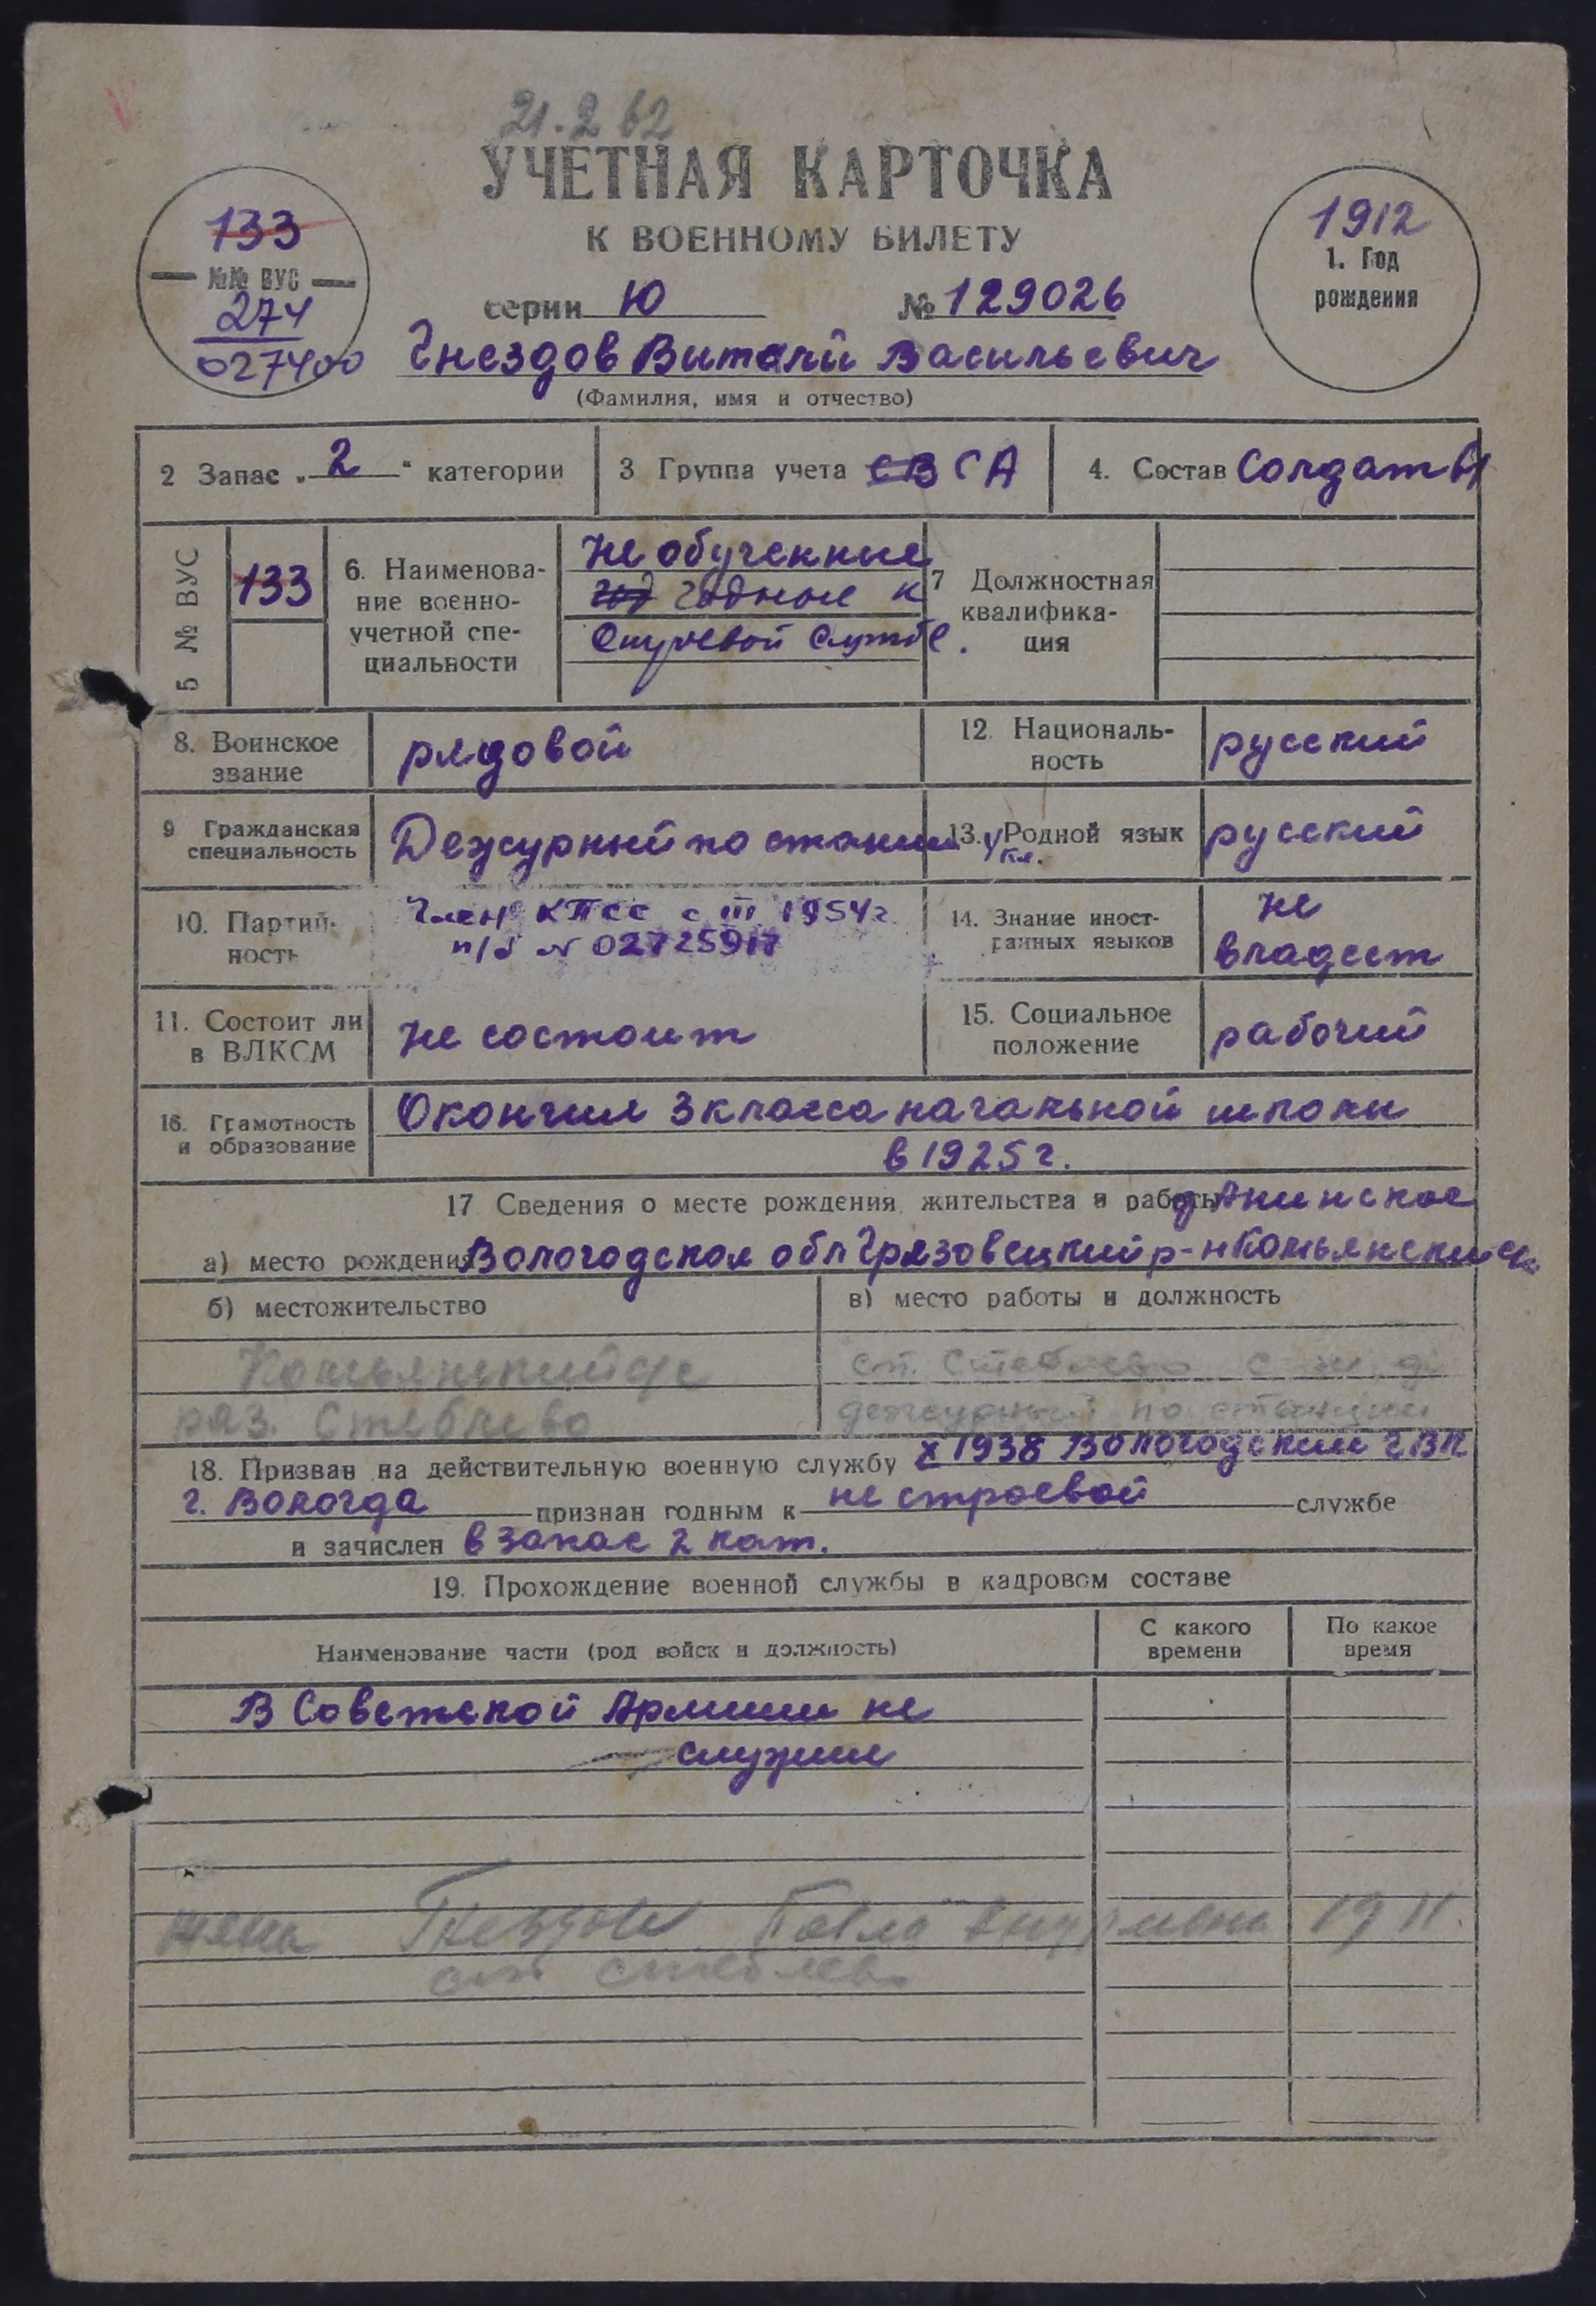 21.2 62
УЧЕТНАЯ КАРТОЧКА
К ВОЕННОМУ БИЛЕТУ
серии Ю № 129026
133
№№ ВУС
274
027400
1912
1. Год
рождения
Гнездов Виталий Васильевич
(Фамилия, имя и отчество)
2 Запас „2“ категории
3 Группа учета СВ СА
4. Состав Солдаты
5 № ВУС
133
6. Наименова-
ние военно-
учетной спе-
циальности
Не обученные
год годные к
службе.
7 Должностная
квалифика-
ция
8. Воинское
звание
рядовой
12. Националь-
ность
русский
9 Гражданская
специальность
Дежурный по станции
13. Родной язык
русский
10. Партий-
ность
Член КПСС с III 1954г.
п/б № 02725917
14. Знание иност-
ранных языков
не
владеет
11. Состоит ли
в ВЛКСМ
не состоит
15. Социальное
положение
рабочий
16. Грамотность
и образование
Окончил 3 класса начальной школы
в 1925 г.
17 Сведения о месте рождения, жительства и работы д. Акинское
а) место рождения Вологодская обл Грязовецкий р-н
б) местожительство
в) место работы и должность
раз. Стеблево
ст.
дежурный по станции
18. Призван на действительную военную службу X 1938 Вологодским ГВК
г. Вологда признан годным к не строевой службе
и зачислен в запас 2 кат.
19. Прохождение военной службы в кадровом составе
Наименование части (род войск и должность)
С какого
времени
По какое
время
В Советской Армии не
служил
жена 1911.